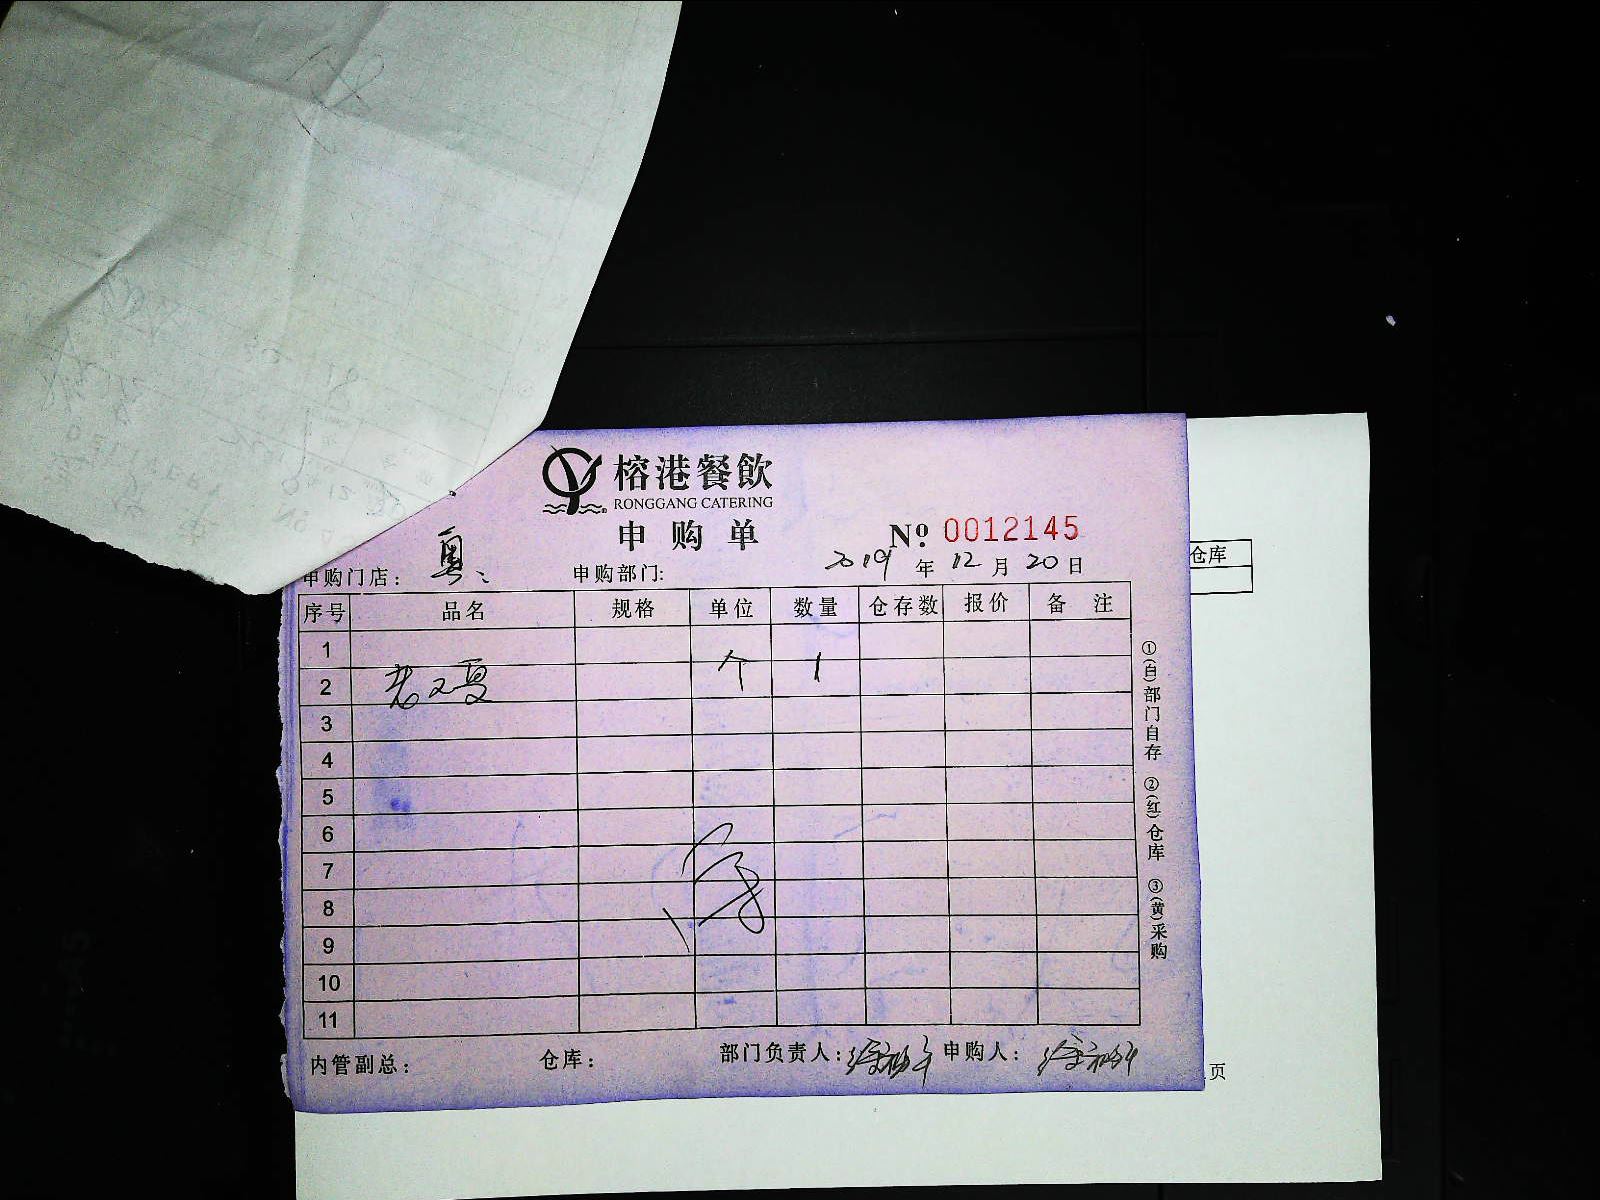 榕港餐飲
RONGGANG CATERING
申购单
No 0012145
申购门店： 申购部门: 2019 年 12 月 20 日
仓库
序号 品名 规格 单位 数量 仓存数 报价 备注
1
2 个 1
3
4
5
6
7
8
9
10
11
①(白)部门自存 ②(红)仓库 ③(黄)采购
内管副总： 仓库： 部门负责人： 申购人：
页